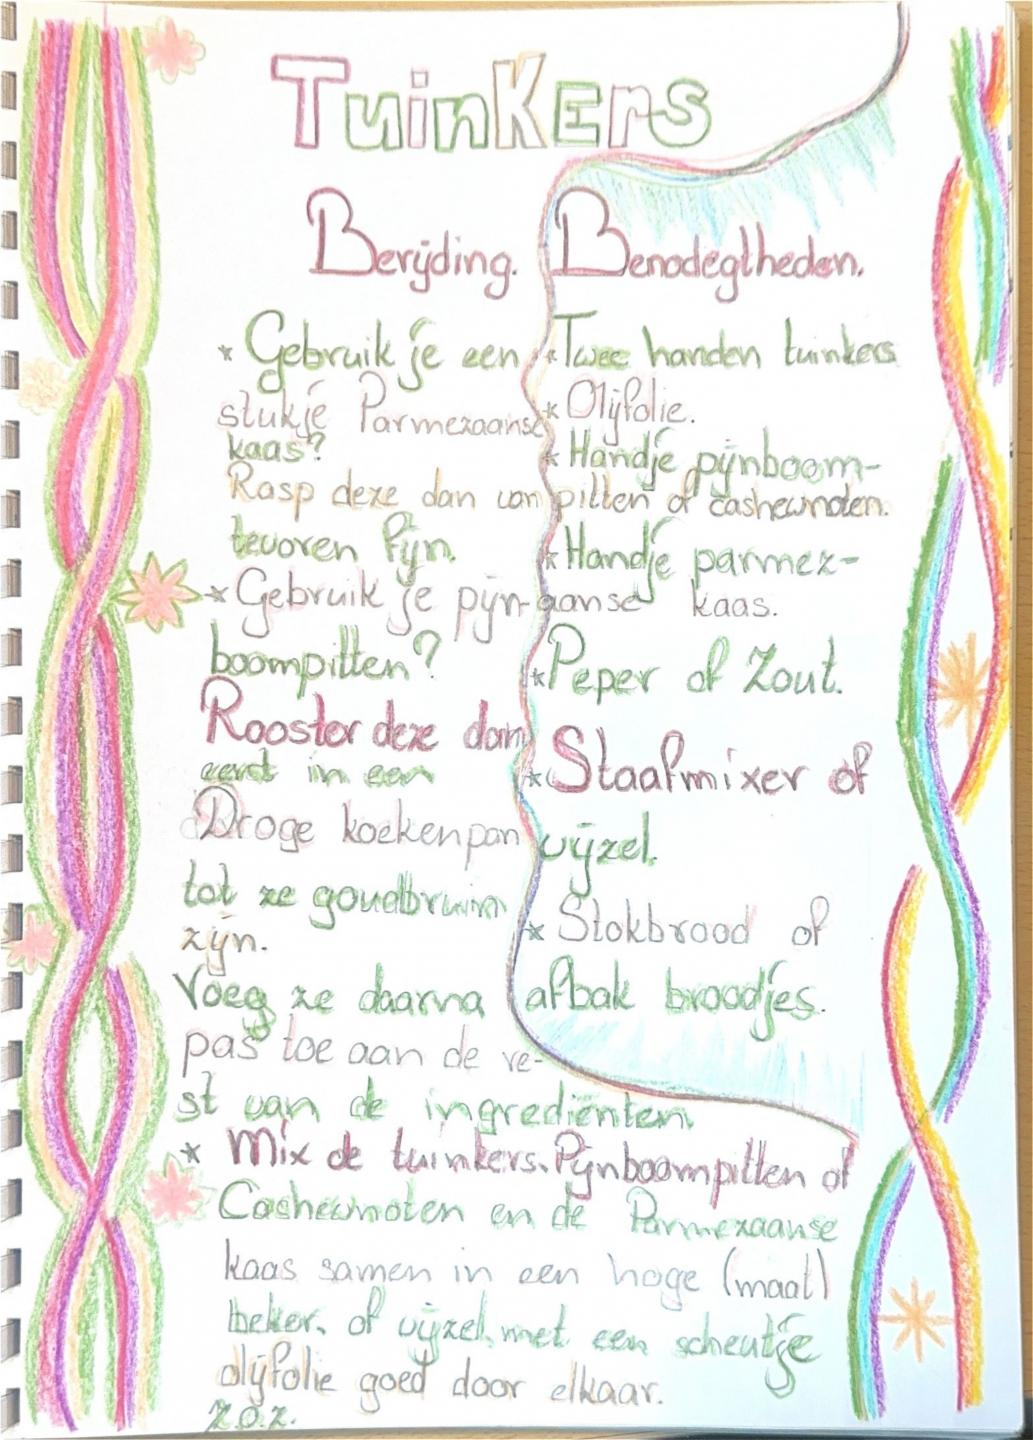 TuinKers
Berijding.
* Gebruik je een
stukje Parmezaanse
kaas?
Rasp deze dan van
tevoren fijn.
* Gebruik je pijn-
boompitten?
Rooster deze dan
eerst in een
Droge koekenpan
tot ze goudbruin
zijn.
Voeg ze daarna
pas toe aan de re-
st van de ingrediënten.
* Mix de tuinkers. Pijnboompitten of
Cashewnoten en de Parmezaanse
kaas samen in een hoge (maat)
beker, of vijzel, met een scheutje
olijfolie goed door elkaar.
z.o.z.
Benodegtheden.
* Twee handen tuinkers
* Olijfolie.
* Handje pijnboom-
pitten of cashewnoten.
* Handje parmez-
aanse kaas.
* Peper of Zout.
* Staafmixer of
vijzel.
* Stokbrood of
afbak broodjes.